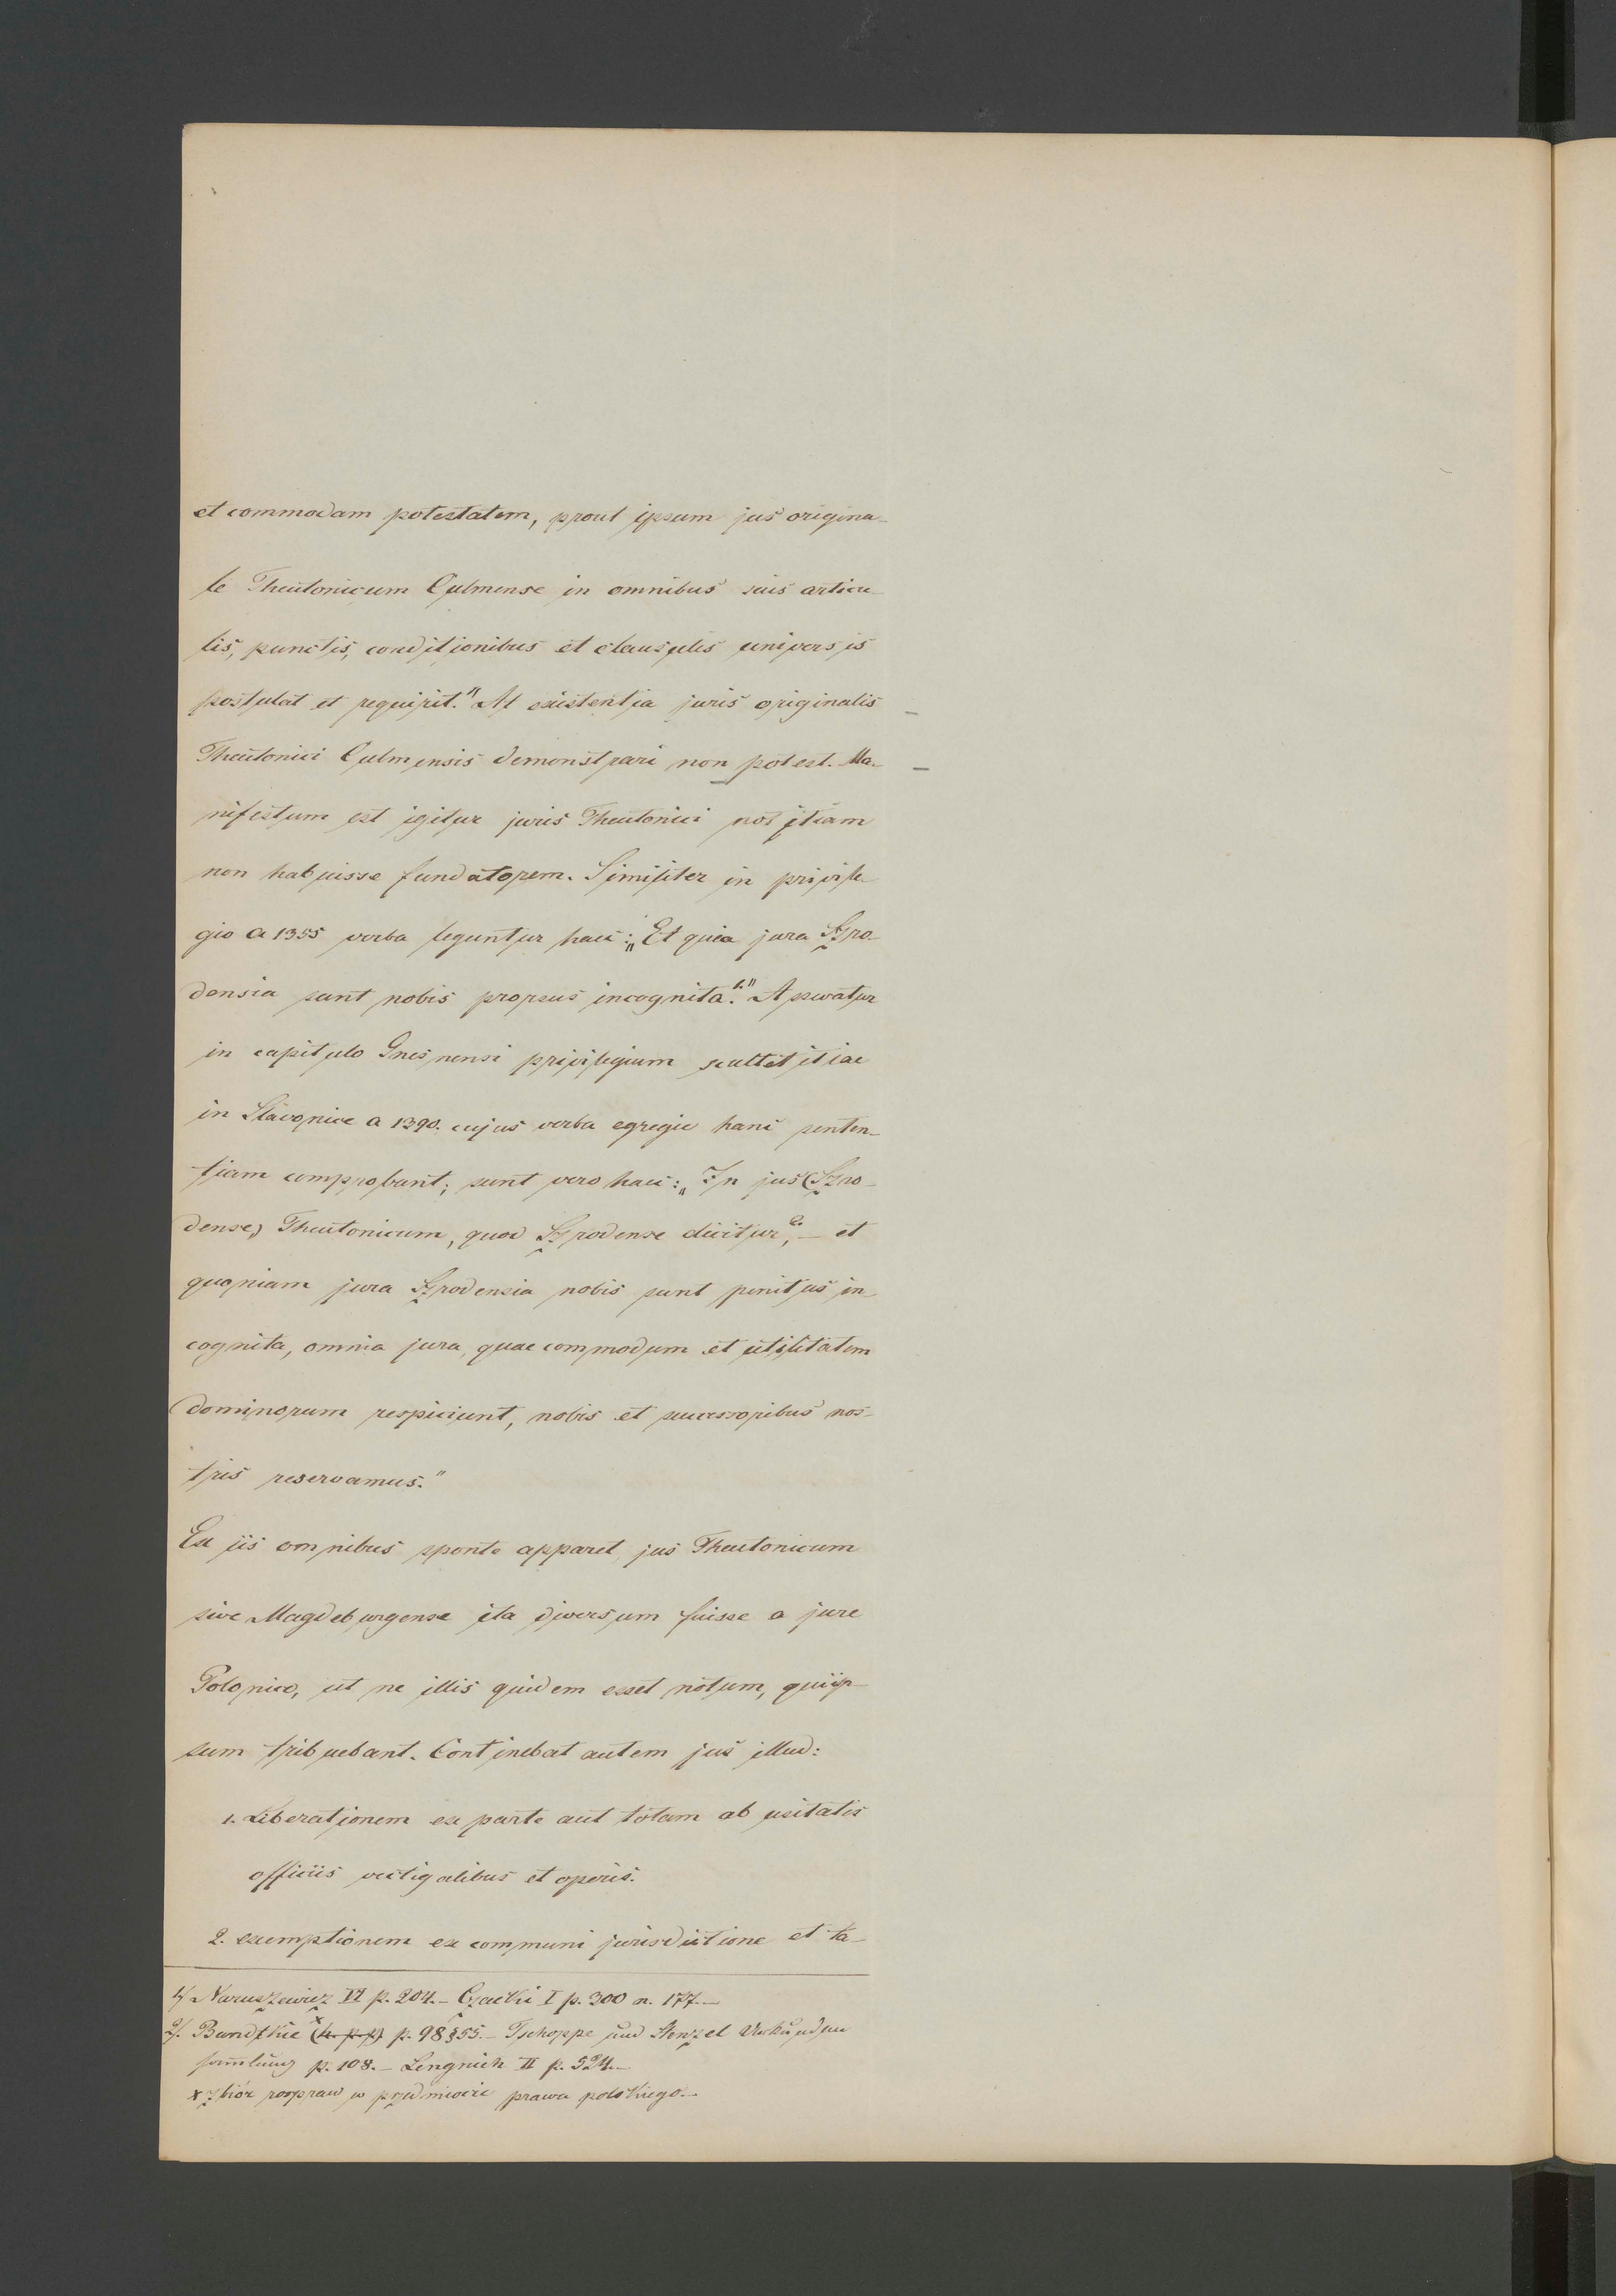 et commodam potestatem, prout ipsum jus origina-
le Theutonicum Culmense in omnibus suis articu-
lis, punctis, conditionibus et clausulis universis
postulat et requirit." At existentia juris originalis
Theutonici Culmensis demonstrari non potest. Ma-
nifestum est igitur juris Theutonici notitiam
non habuisse fundatorem. Similiter in privile-
gio a 1355 verba leguntur haec: „Et quia jura Szro-
densia sunt nobis prorsus incognita.1." Asservatur
in capitulo Gnesnensi privilegium scultetitiae
in Slavonice a 1390. cujus verba egregie hanc senten-
tiam comprobant; sunt vero haec: „In jus (Szro-
dense) Theutonicum, quod Szrodense dicitur2., – et
quoniam jura Szrodensia nobis sunt penitus in-
cognita, omnia jura, quae commodum et utilitatem
dominorum respiciunt, nobis et successoribus nos-
tris reservamus."
Ex iis omnibus sponte apparet, jus Theutonicum
sive Magdeburgense ita diversum fuisse a jure
Polonico, ut ne illis quidem esset notum, qui ip-
sum tribuebant. Continebat autem jus illud:
1. Liberationem ex parte aut totam ab usitatis
officiis vectigalibus et operis.
2. exemptionem ex communi jurisdictione et ta-
1/ Naruszewicz VI p. 204. – Czacki I p. 300 n. 177. –
2/. Bandtkie x (h. p. p.) p. 98 § 55. – Tschoppe und Stenzel Urkunden
sammlung p. 108. – Lengnich II p. 524. –
x zbiór rozpraw o przedmiocie prawa polskiego. –